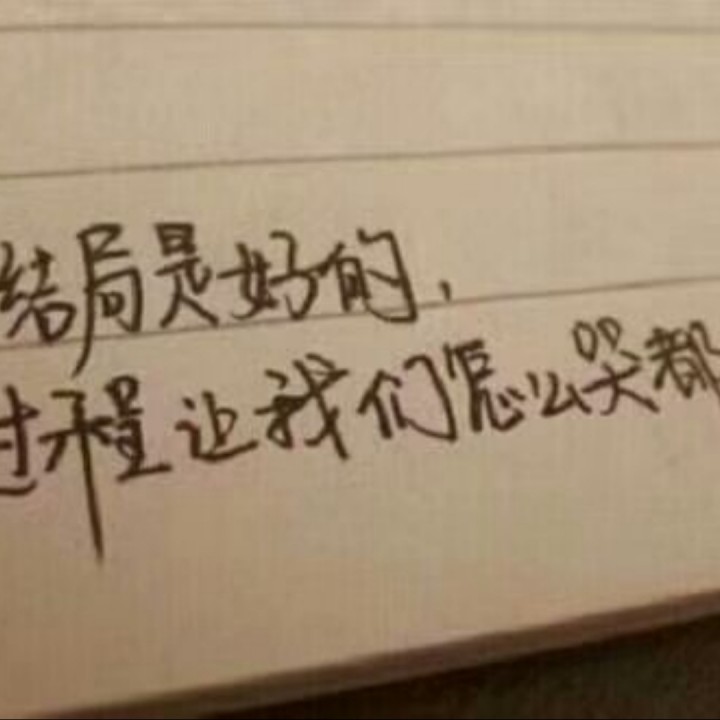 结局是好的，
过程让我们怎么哭都